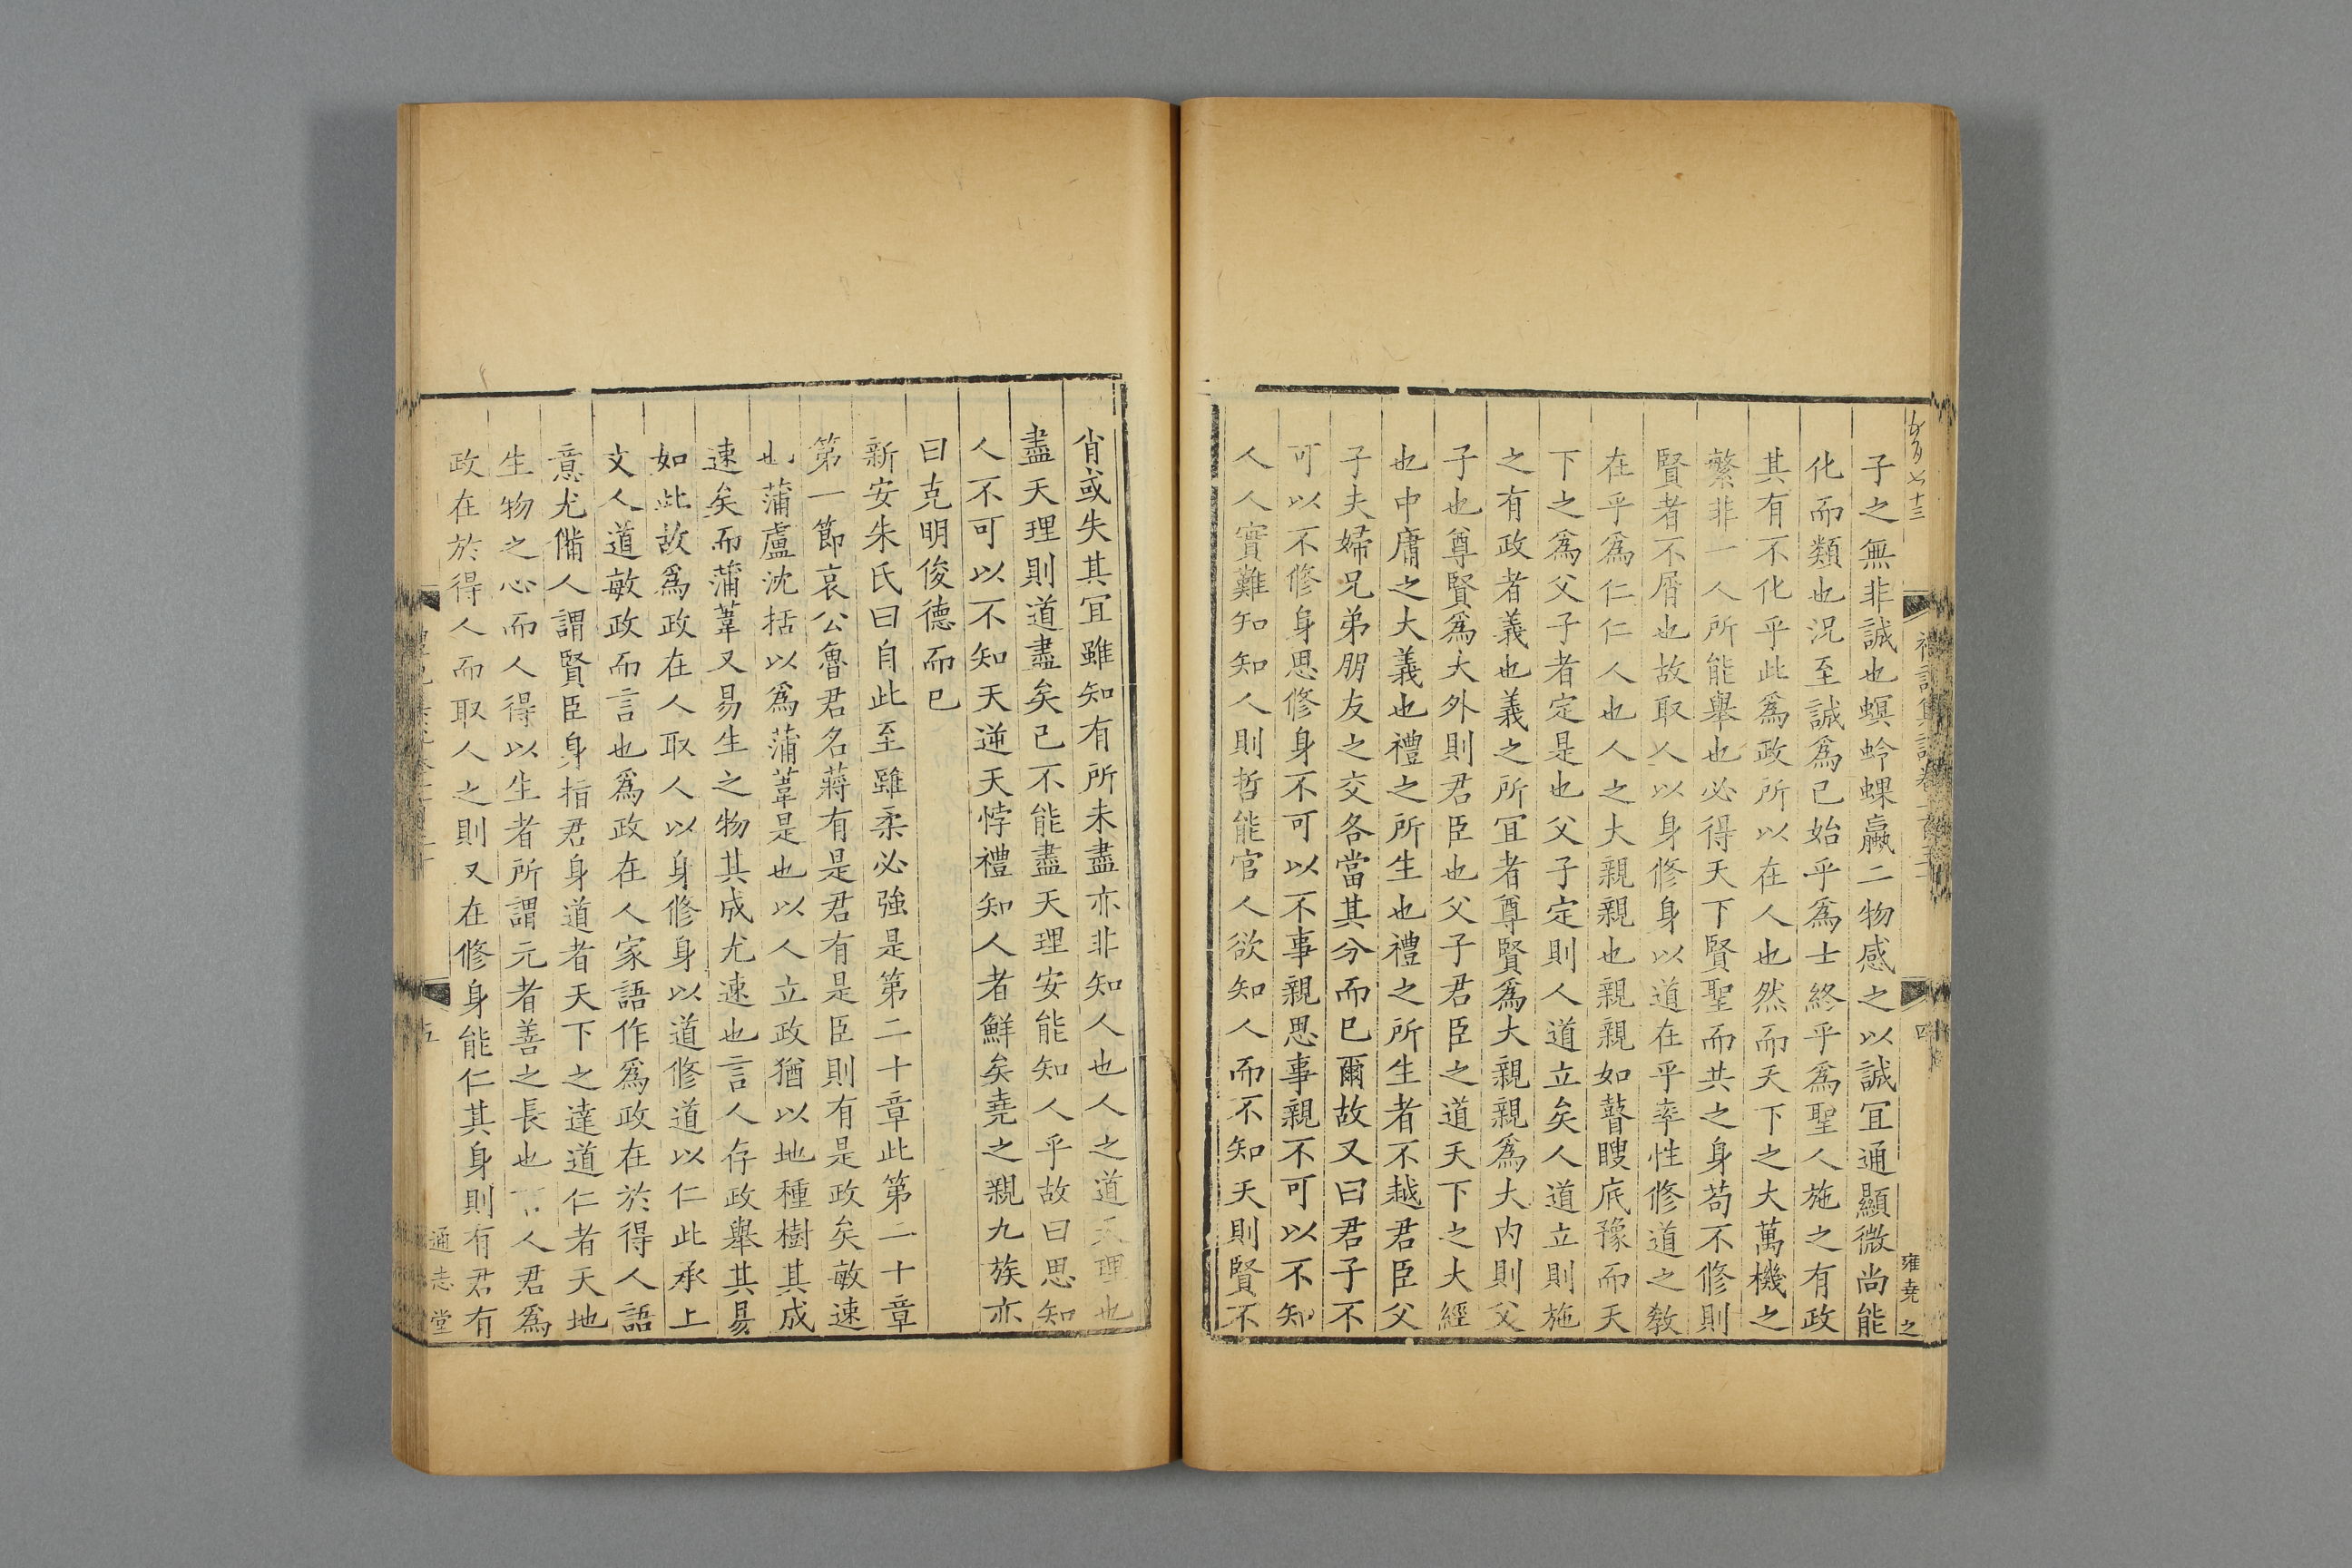 子之無非誠也螟蛉蜾蠃二物感之以誠宜通顯微尚能
化而類也況至誠爲己始乎爲士終乎爲聖人施之有政
其有不化乎此爲政所以在人也然而天下之大萬機之
繁非一人所能舉也必得天下賢聖而共之身苟不修則
賢者不屑也故取人以身修身以道在乎率性修道之教
在乎爲仁仁人也人之大親親也親親如瞽瞍底豫而天
下之爲父子者定是也父子定則人道立矣人道立則施
之有政者義也義之所宜者尊賢爲大親親爲大內則父
子也尊賢爲大外則君臣也父子君臣之道天下之大經
也中庸之大義也禮之所生也禮之所生者不越君臣父
子夫婦兄弟朋友之交各當其分而已爾故又曰君子不
可以不修身思修身不可以不事親思事親不可以不知
人人實難知知人則哲能官人欲知人而不知天則賢不
雍堯之
肖或失其宜雖知有所未盡亦非知人也人之道天理也
盡天理則道盡矣已不能盡天理安能知人乎故曰思知
人不可以不知天逆天悖禮知人者鮮矣堯之親九族亦
曰克明俊德而已
新安朱氏曰自此至雖柔必強是第二十章此第二十章
第一節哀公魯君名蔣有是君有是臣則有是政矣敏速
也蒲盧沈括以爲蒲葦是也以人立政猶以地種樹其成
速矣而蒲葦又易生之物其成尤速也言人存政舉其易
如此故爲政在人取人以身修身以道修道以仁此承上
文人道敏政而言也爲政在人家語作爲政在於得人語
意尤備人謂賢臣身指君身道者天下之達道仁者天地
生物之心而人得以生者所謂元者善之長也人君爲
政在於得人而取人之則又在修身能仁其身則有君有
五
通志堂